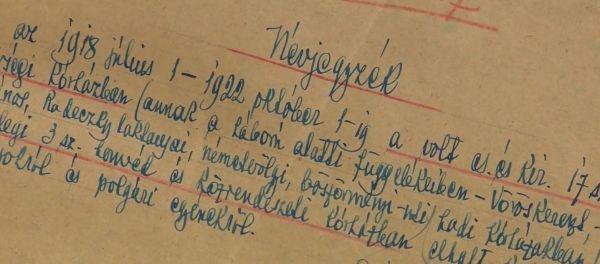 Névjegyzék
az 1918 július 1 – 1922 október 1-ig a volt cs. és kir. 17
régi Kórházban (annak a háború alatti függelékeiben – Vöröskereszt, –
Radeczky laktanyai, németvölgyi, böszörményi-úti hadi kórházakban)
3 sz. honvéd és közrendészeti kórházban elhalt
és polgári egyénekről.